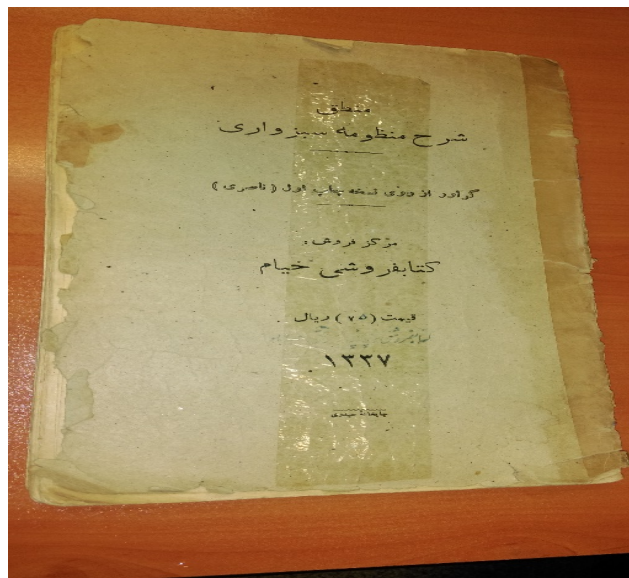 منطق
شرح منظومه سبزواری
گراور از روی نسخه چاپ اول (ناصری)
مرکز فروش :
کتابفروشی خیام
قیمت (۷۵) ریال
۱۳۳۷
چاپخانه حیدری